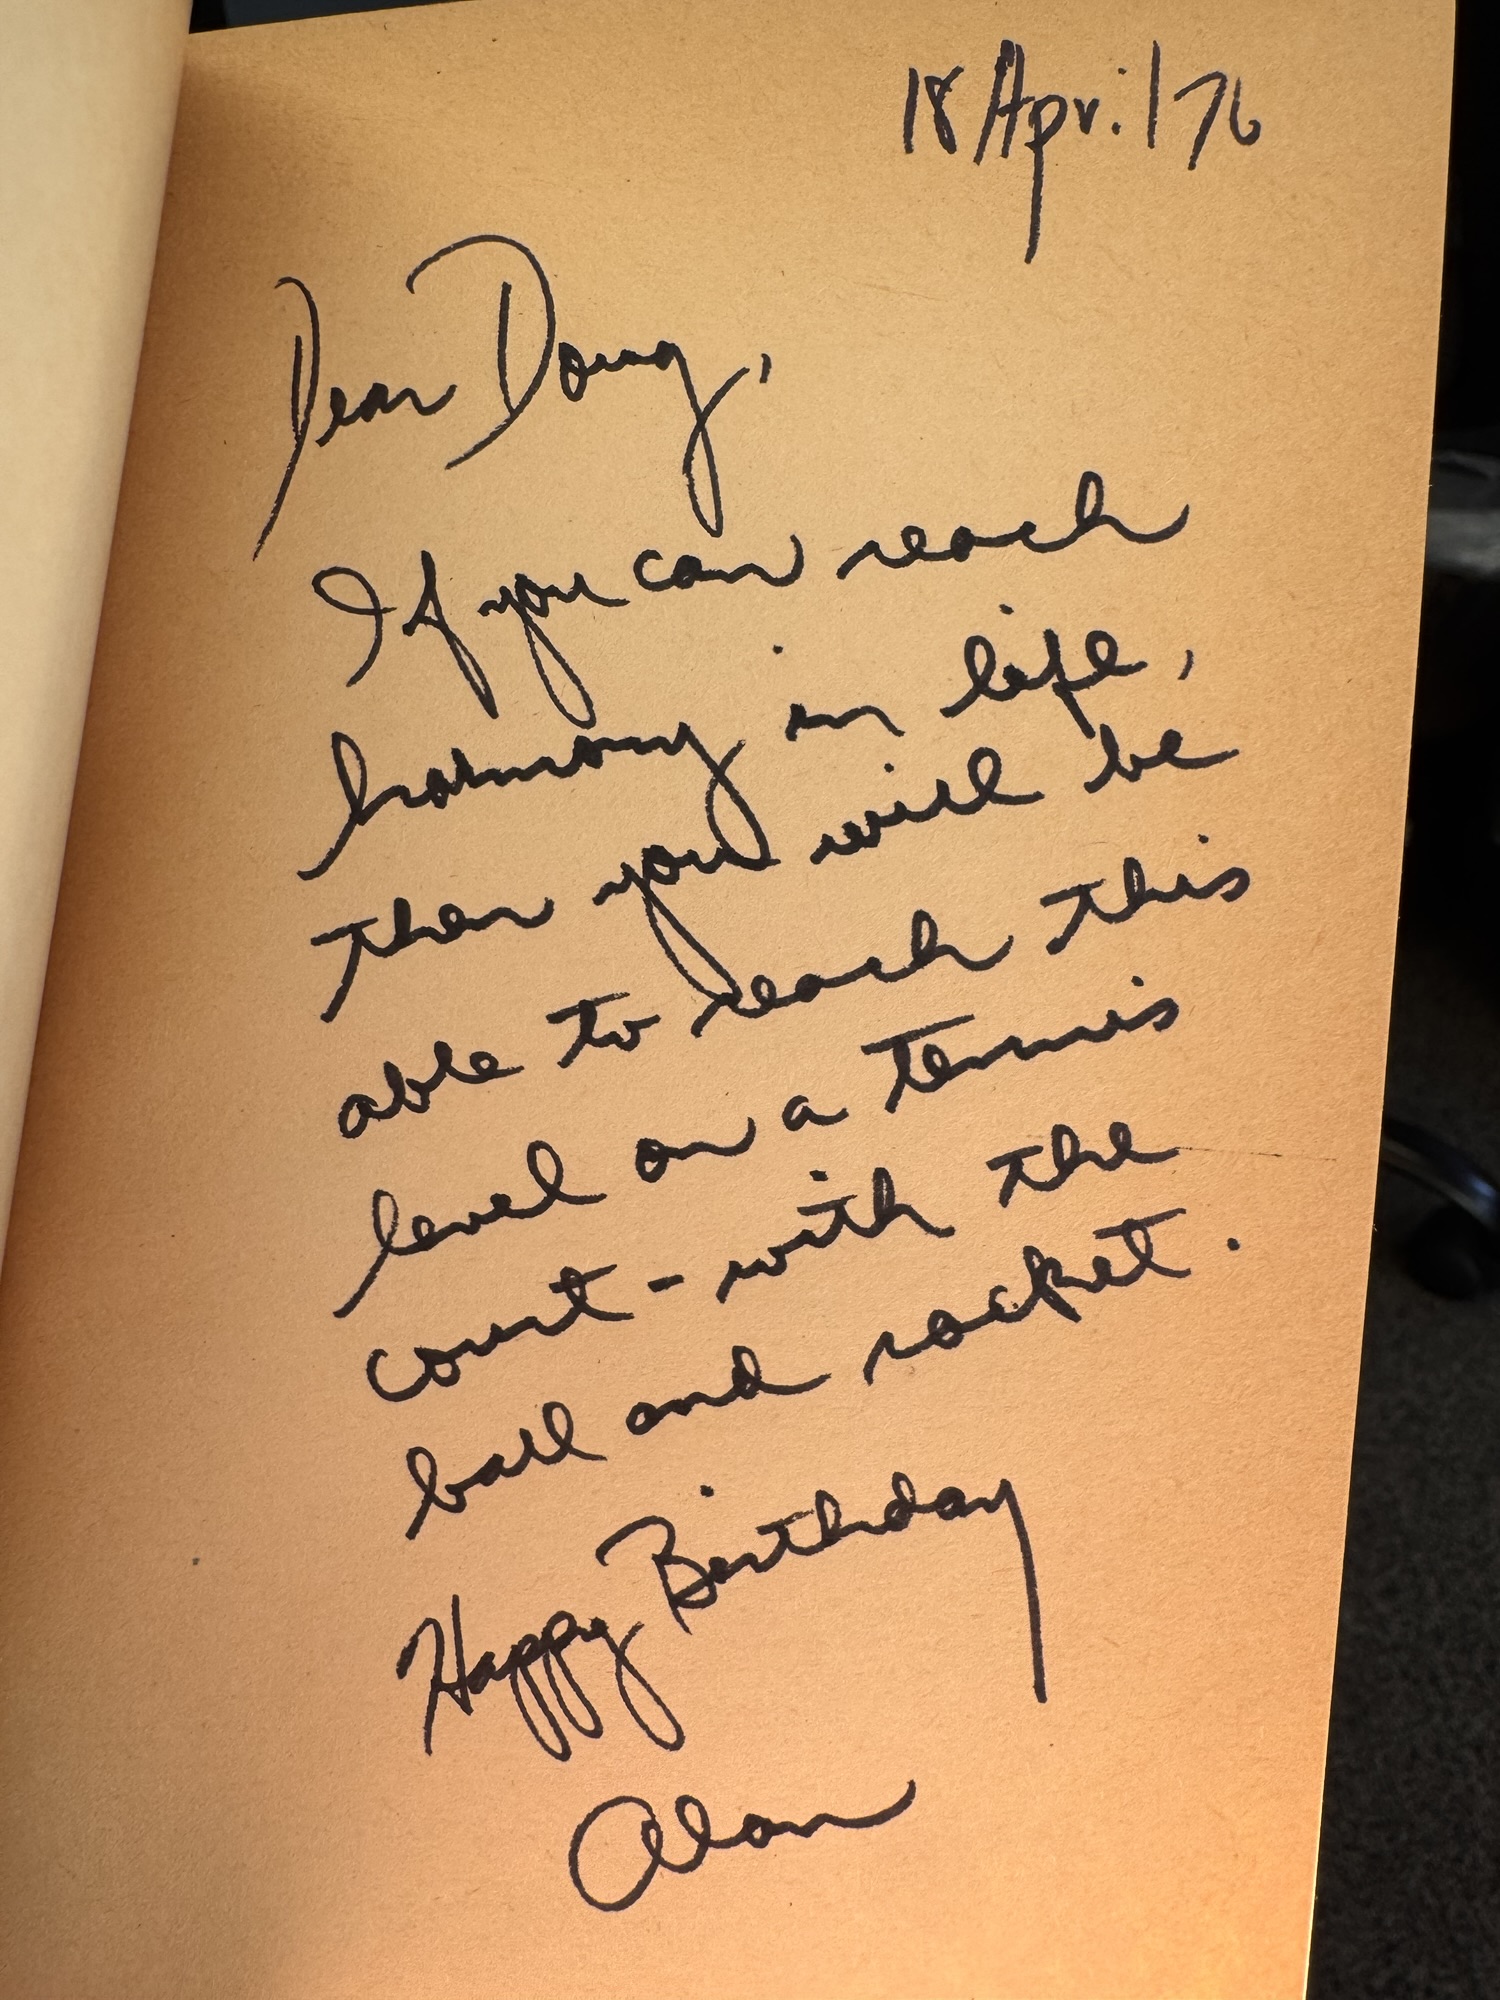 18 April 76
Dear Doug,
If you can reach
harmony in life,
then you will be
able to reach this
level on a tennis
court - with the
ball and racket.
Happy Birthday
Alan